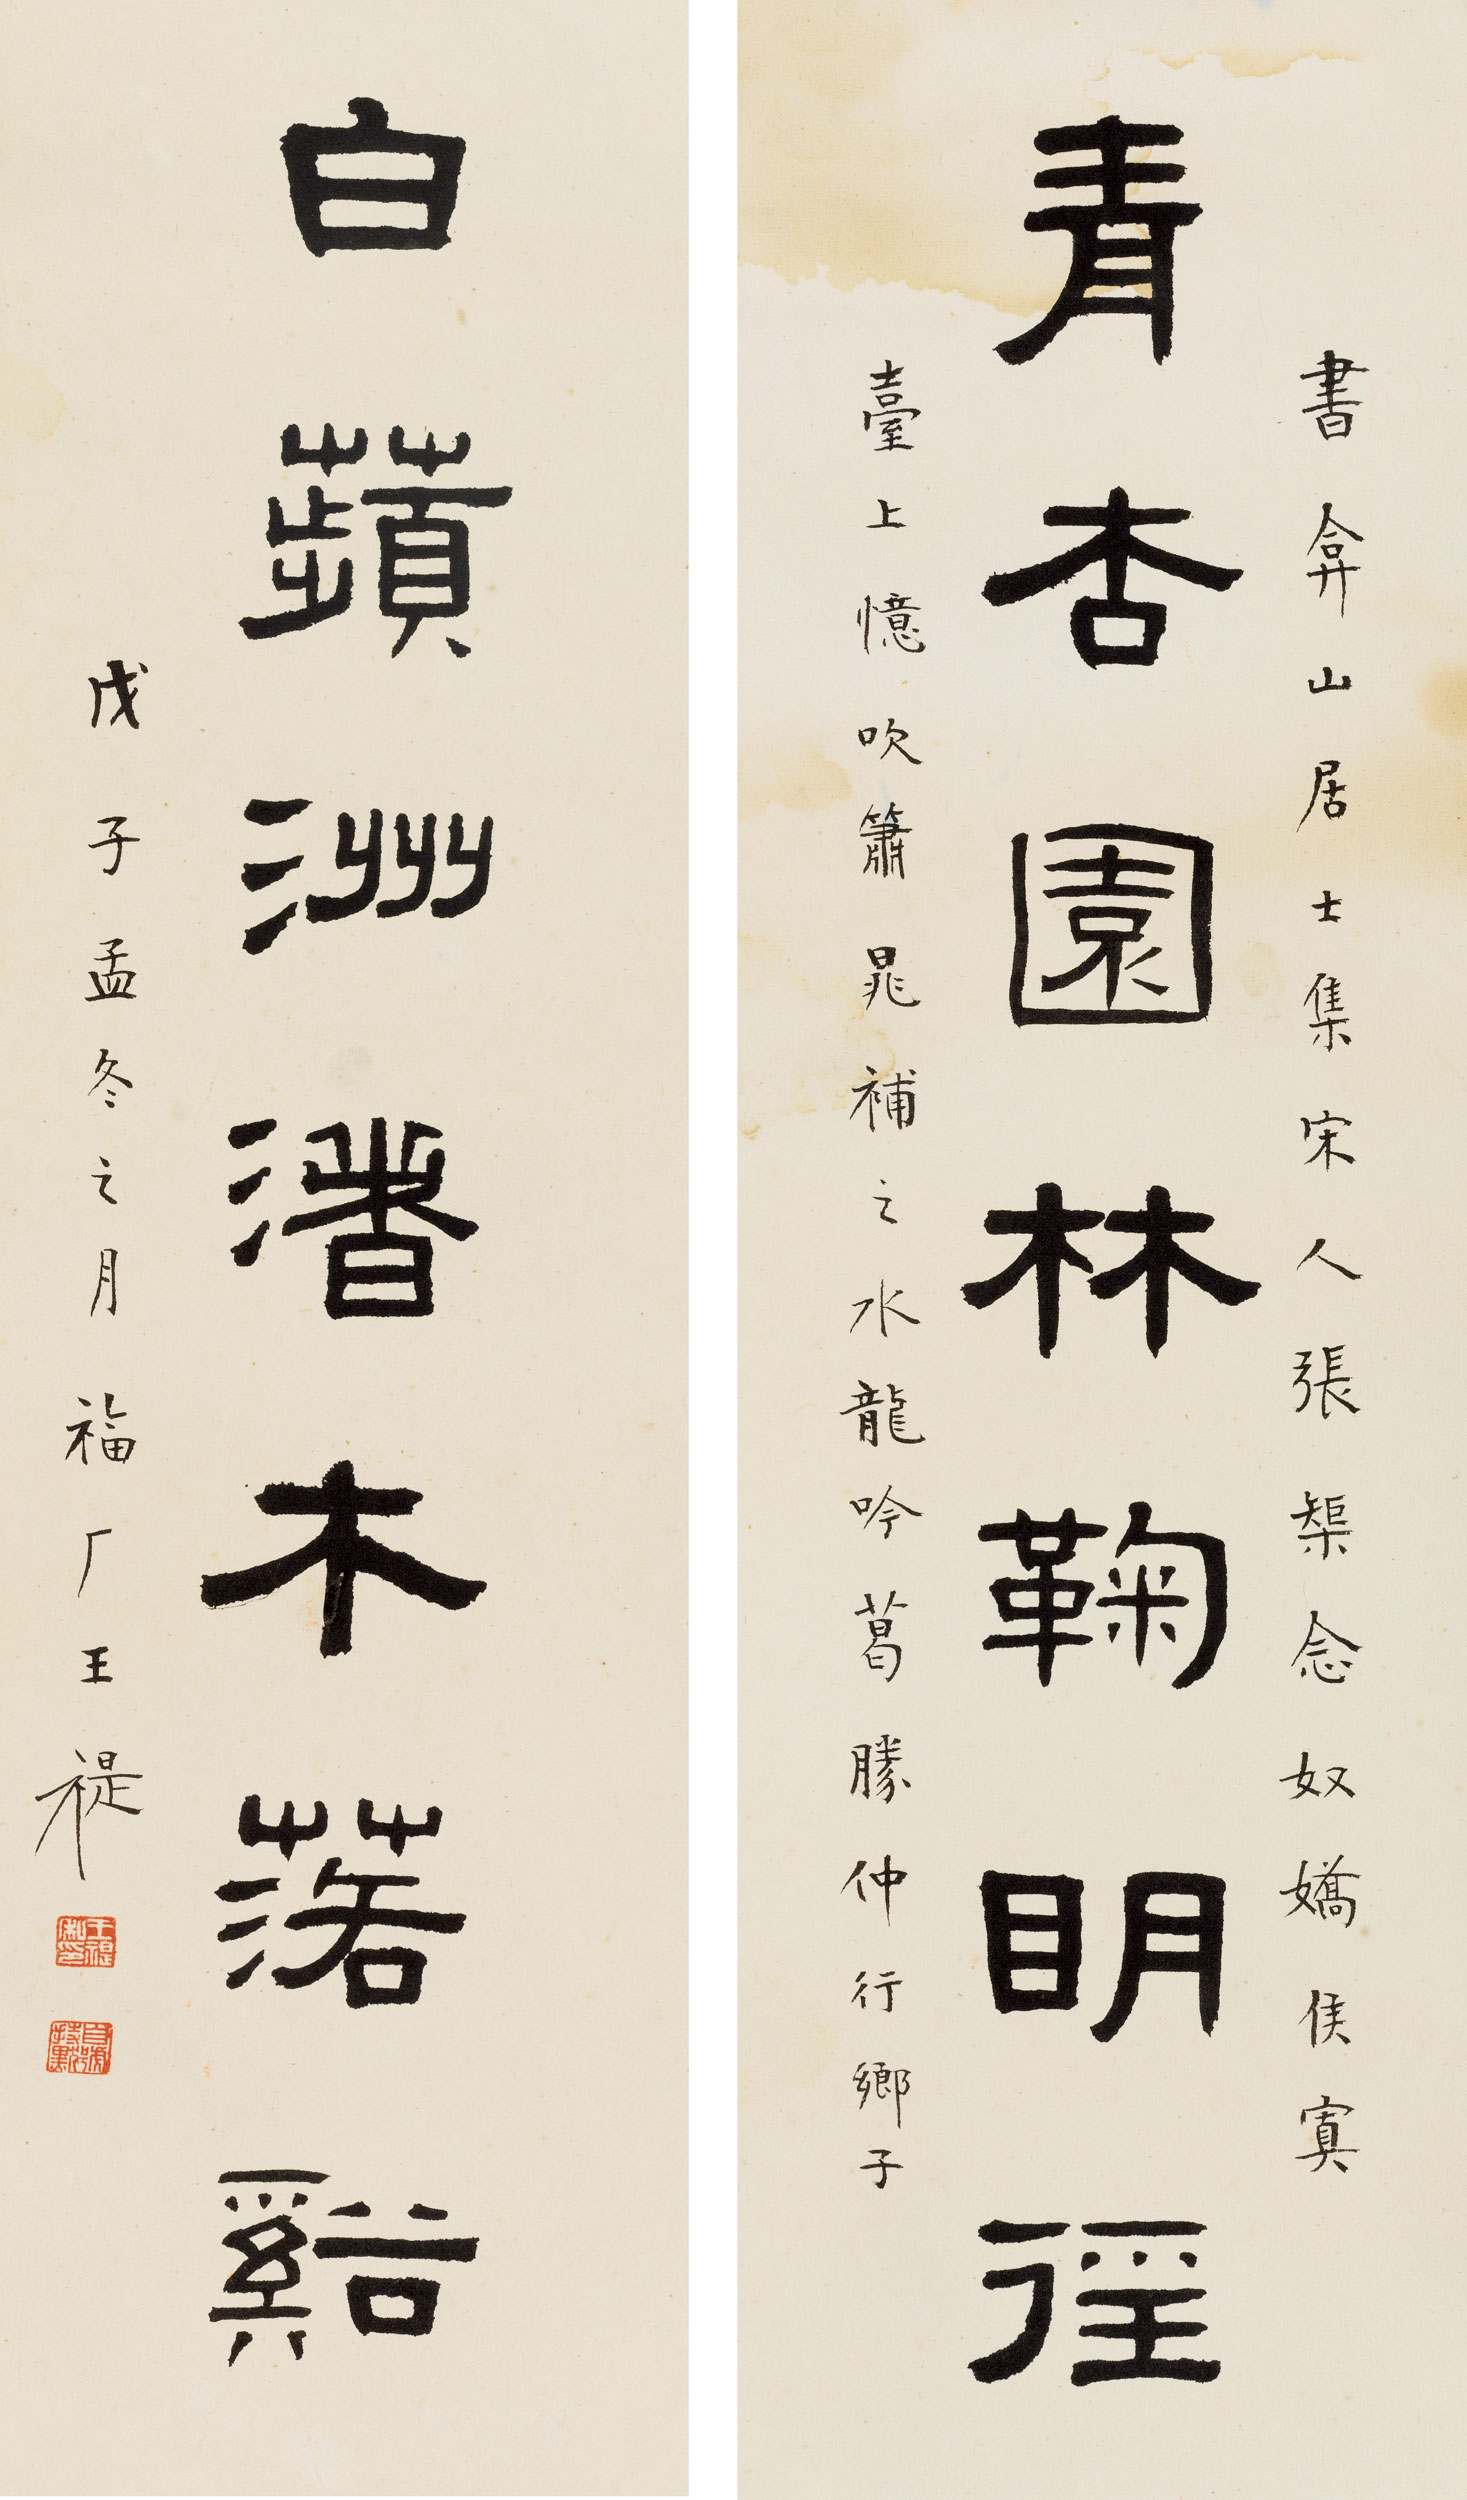 書弇山居士集宋人張榘念奴嬌侯寘
青杏園林鞠眀徑
臺上憶吹簫晁補之水龍吟葛勝仲行鄉子
白蘋洲渚木落谿
戊子孟冬之月福厂王禔
王禔私印